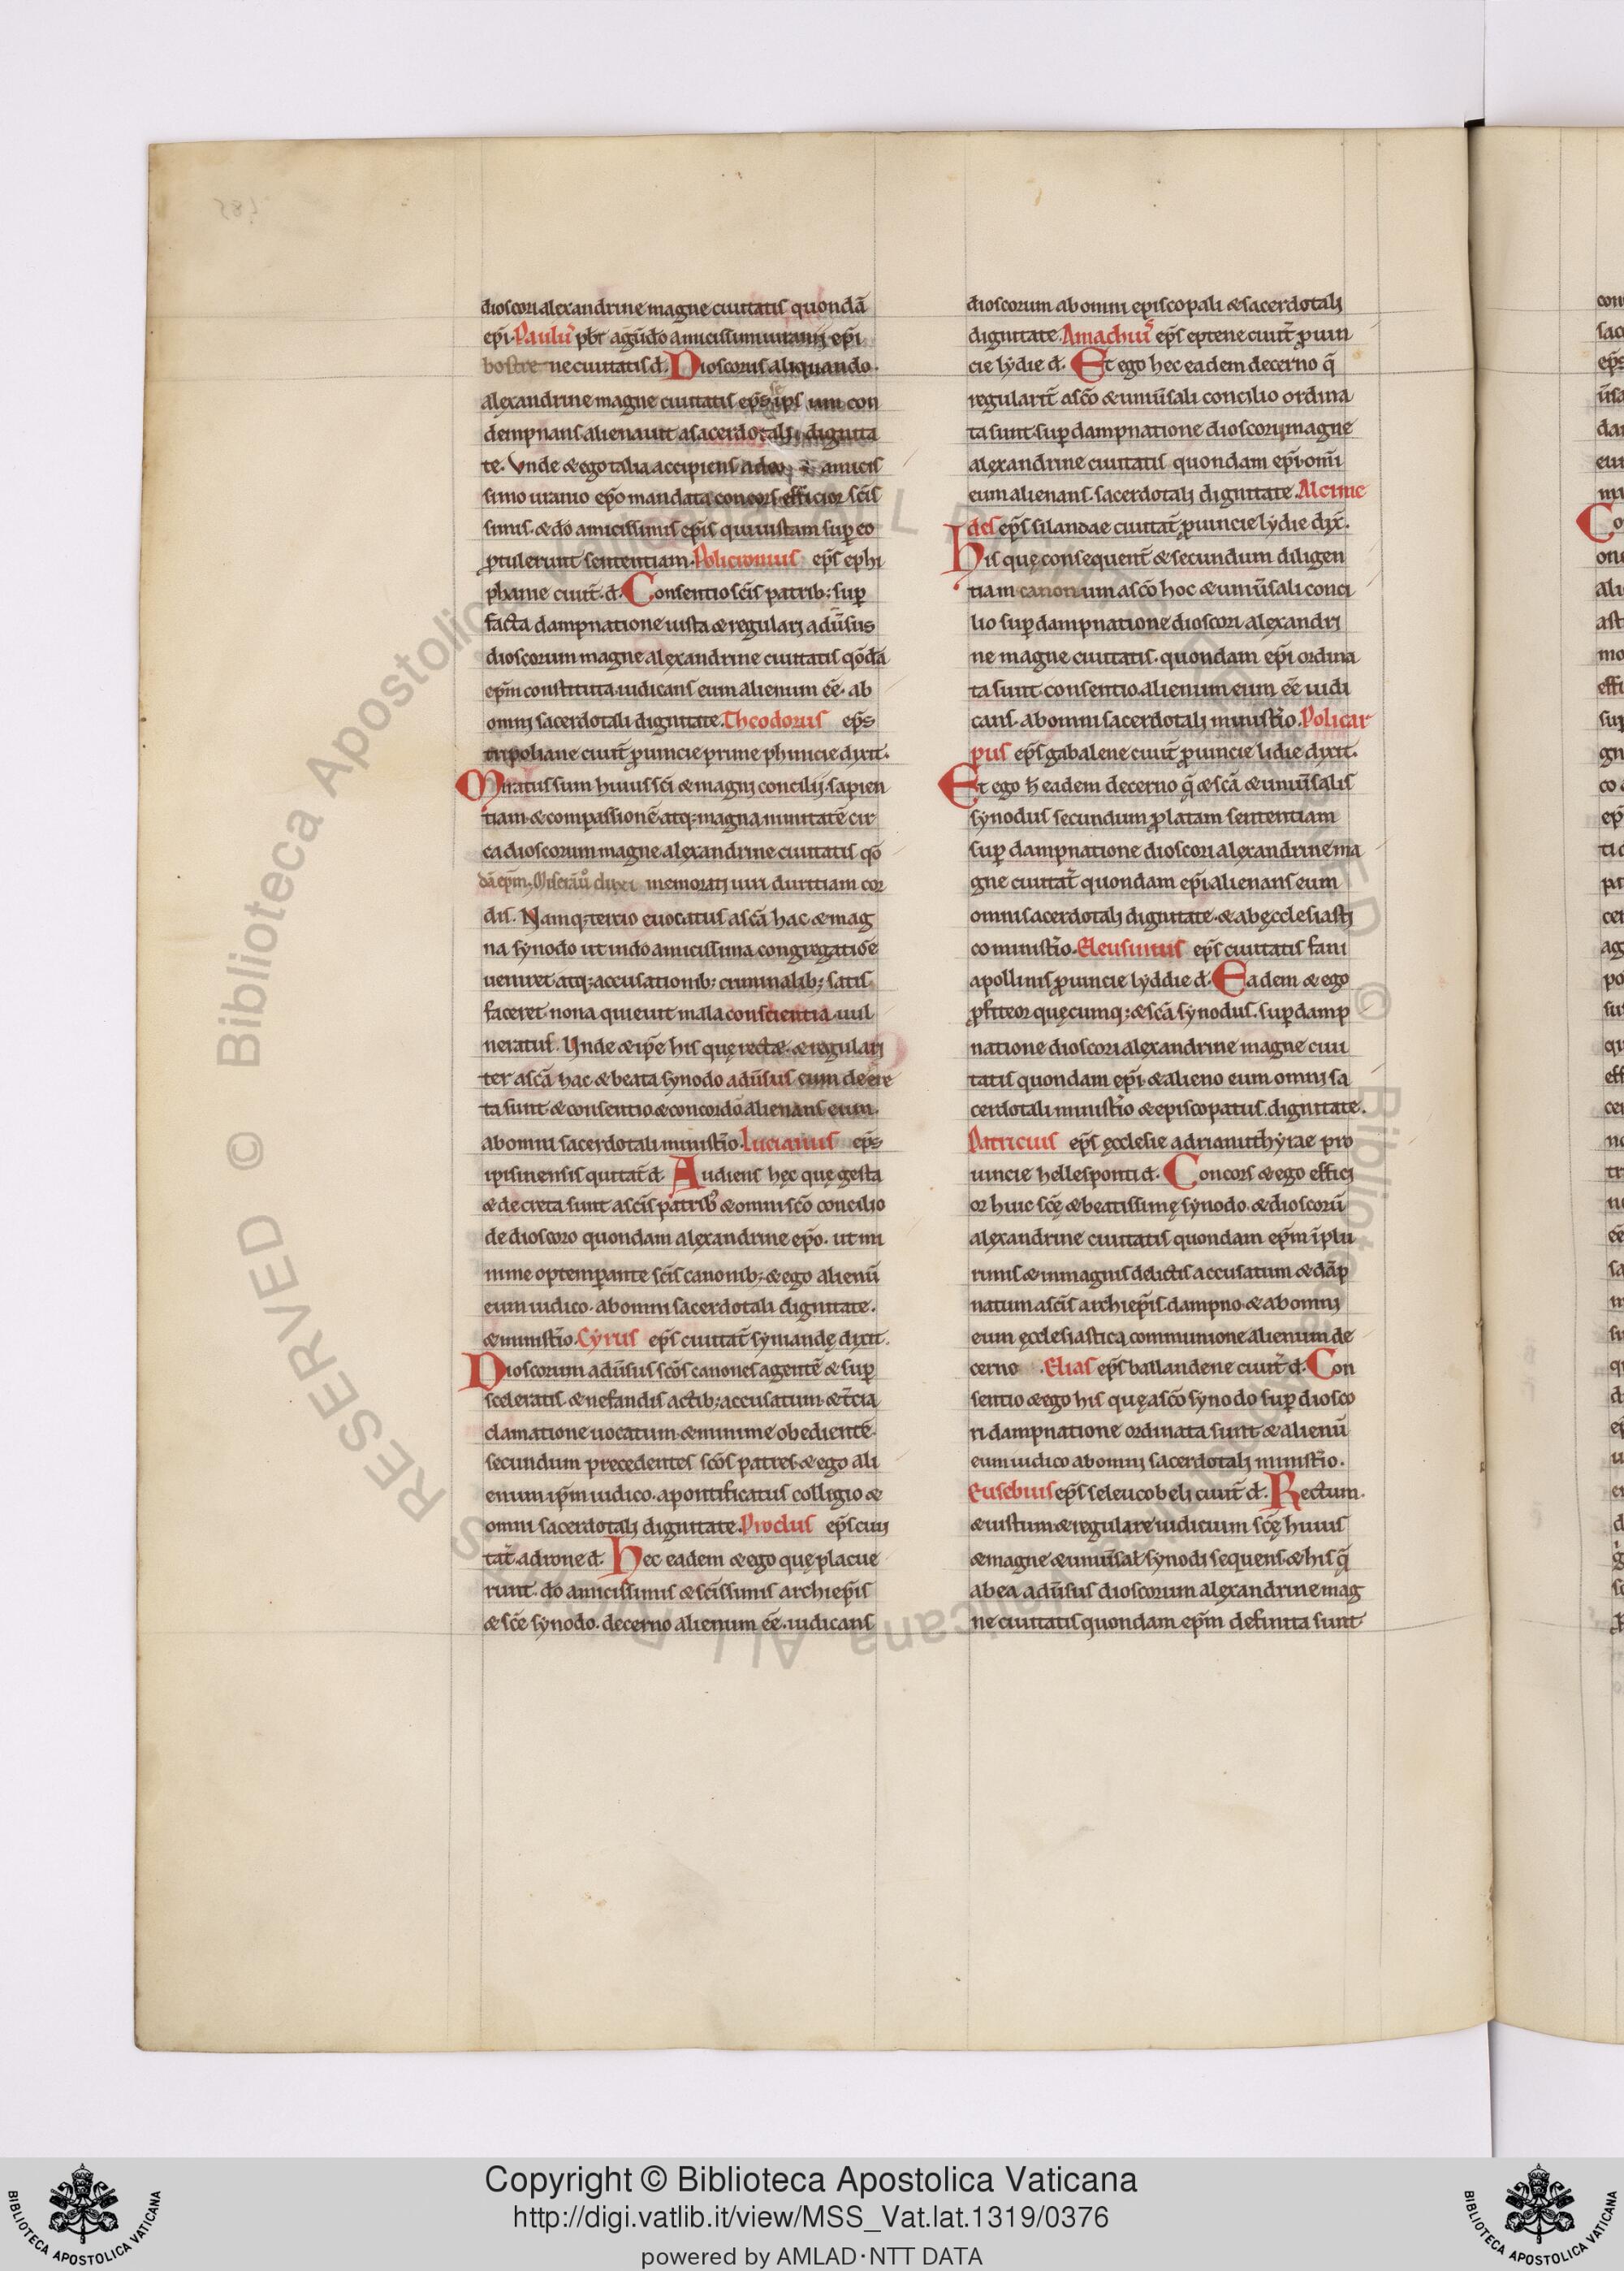 dioscori alexandrine magne ciuitatis quondā
ep̄i. Paulꝰ pbr̄ agūdo amicissimi uranii ep̄i
bostre ne ciuitatis d̄. Dioscorus aliquando
alexandrine magne ciuitatis ep̄s se ips um con
dempnans alienauit a sacerdotali dignita
te. Vnde & ego talia accipiens a deo amicis
simo uranio ep̄o mandata concors efficior sc̄is
simis. & dō amicissimis ep̄is qui iustam sup̱ eo
ꝓtulerunt sententiam. Policronius ep̄s ephi
phanie ciuit̄. d̄. Consentio sc̄is patrib; sup̱
facta dampnatione iusta & regulari adūsus
dioscorum magne alexandrine ciuitatis qōdā
ep̄m constituta iudicans eum alienum eē. ab
omni sacerdotali dignitate. Theodorus ep̄s
tripoliane ciuit̄ ꝓuincie prime phinicie dixit.
Miratus sum huius sc̄i & magni concilii. sapien
tiam & compassionē atq; magna nimitatē cir
ca dioscorum magne alexandrine ciuitatis qō
dā ep̄m. Miserāū duxi memorati uiri duritiam cor
dis. Namq; tercio euocatus a sc̄a hac & mag
na synodo ut in dō amicissima congregatiōe
ueniret atq; accusationib; criminalib; satis
faceret. non a quieuit mala conscientia uul
neratus. Unde & ip̄e his quę rectae & regulari
ter a sc̄a hac & beata synodo adūsus cum decre
ta sunt & consentio & concordo alienans eum.
ab omni sacerdotali minist̄io. Lucianus ep̄s
ipisinensis quitat̄ d̄. Audiens hęc quę gesta
& decreta sunt a sc̄is patribꝰ & omni sc̄o concilio
de dioscoro quondam alexandrine ep̄o. ut mi
nime optemp̱ante sc̄is canonib; & ego alienū
eum iudico. ab omni sacerdotali dignitate.
& minist̄io. Cyrus ep̄s ciuitat̄ symandę dixit.
Dioscorum adūsus sc̄os canones agentē & sup̱
sceleratis & nefandis actib; accusatum & t̄cia
clamatione uocatum & minime obedientē
secundum precedentes sc̄os patres & ego ali
enum ip̄m iudico. a pontificatus colligio &
omni sacerdotali dignitate. Proclus ep̄s ciui
tat̄. adrone d̄. Hec eadem & ego quę placue
runt. dō amicissimis & sc̄issimis archiep̄is
& sc̄e synodo. decerno alienum eē. iudicans
dioscorum ab omni episcopali & sacerdotali
dignitate. Amachiꝰ ep̄s eptene ciuit̄ ꝓuin
cie lydie d̄. Et ego hec eadem decerno q̄
regularit̄ a sc̄o & uniūsali concilio ordina
ta sunt. sup̱ dampnatione dioscori magne
alexandrine ciuitatis quondam ep̄i. om̄i
eum alienans. sacerdotali dignitate. Alcime
des ep̄s silandae ciuitat̄ ꝓuincie lydie dix̄.
His quę consequent̄ & secundum diligen
tiam canonum a sc̄o hoc & uniūsali conci
lio sup̱ dampnatione dioscori alexandri
ne magne ciuitatis. quondam ep̄i ordina
ta sunt. consentio. alienum eum eē iudi
cans. ab omni sacerdotali minist̄io. Policar
pus ep̄s gabalene ciuit̄ ꝓuincie lidie dixit.
Et ego h̄ eadem decerno q̄ & sc̄a & uniūsalis
synodus secundum ꝓlatam sententiam
sup̱ dampnatione dioscori alexandrine ma
gne ciuitat̄ quondam ep̄i. alienans eum
omni sacerdotali dignitate. & ab ęcclesiasti
co minist̄io. Eleusinius ep̄s ciuitatis fani
apollinis ꝓuincie lyddie d̄. Eadem & ego
ꝓfiteor quęcumq; & sc̄a synodus. sup̱ damp
natione dioscori alexandrine magne ciui
tatis quondam ep̄i. & alieno eum omni sa
cerdotali minist̄io & episcopatus dignitate.
Patricius ep̄s ęcclesie adrianuthyrae pro
uincie hellesponti d̄. Concors & ego effici
or huic sc̄ę & beatissimę synodo. & dioscorū
alexandrine ciuitatis quondam ep̄m ī plu
rimis & in magnis delictis accusatum & dāp
natum a sc̄is archiep̄is. dampno & ab omni
eum ęcclesiastica communione alienum de
cerno. Elias ep̄s ballandene ciuit̄ d̄. Con
sentio & ego his quę a sc̄o synodo sup̱ diosco
ri dampnatione ordinata sunt & alienū
eum iudico ab omni sacerdotali minist̄io.
Eusebius ep̄s seleucobeli ciuit̄ d̄. Rectum
& iustum & regulare iudicium sc̄ę huius
& magne & uniūsal̄ synodi sequens. & his q̄
ab ea adūsus dioscorum alexandrine mag
ne ciuitatis quondam ep̄m definita sunt
Copyright © Biblioteca Apostolica Vaticana
http://digi.vatlib.it/view/MSS_Vat.lat.1319/0376
powered by AMLAD·NTT DATA